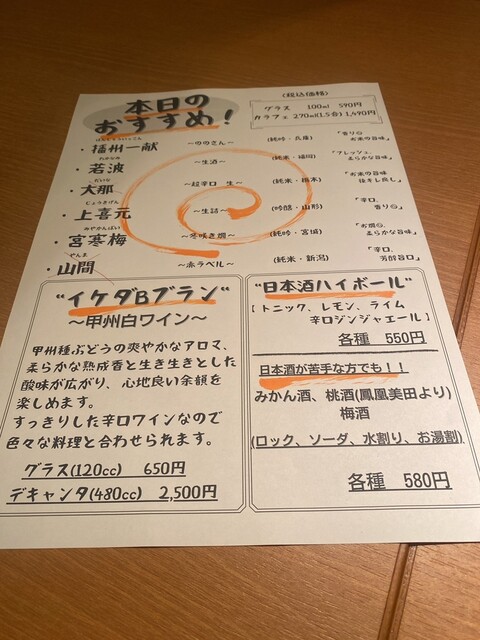 本日の
おすすめ！
(税込価格)
グラス　100ml　590円
カラフェ　270ml(1.5合)　1,490円
ばんしゅういっこん
・播州一献　～ののさん～　(純吟・兵庫)　「香り◎
お米の旨味」
わかなみ
・若波　～生酒～　(純米・福岡)　「フレッシュ、
柔らかな旨味」
だいな
・大那　～超辛口　生～　(純米・栃木)　「お米の旨味
後キレ良し」
じょうきげん
・上喜元　～生詰～　(吟醸・山形)　「辛口、
香り◎」
みやかんばい
・宮寒梅　～寒咲き燗～　(純吟・宮城)　「お燗◎、
柔らかな旨味」
やんま
・山間　～赤ラベル～　(純米・新潟)　「辛口、
芳醇旨口」
“イケダBブラン”
～甲州白ワイン～
甲州種ぶどうの爽やかなアロマ、
柔らかな熟成香と生き生きとした
酸味が広がり、心地良い余韻を
楽しめます。
すっきりした辛口ワインなので
色々な料理と合わせられます。
グラス(120cc)　650円
デキャンタ(480cc)　2,500円
“日本酒ハイボール”
[トニック、レモン、ライム
辛口ジンジャエール]
各種　550円
日本酒が苦手な方でも！！
みかん酒、桃酒(鳳凰美田より)
梅酒
(ロック、ソーダ、水割り、お湯割)
各種　580円